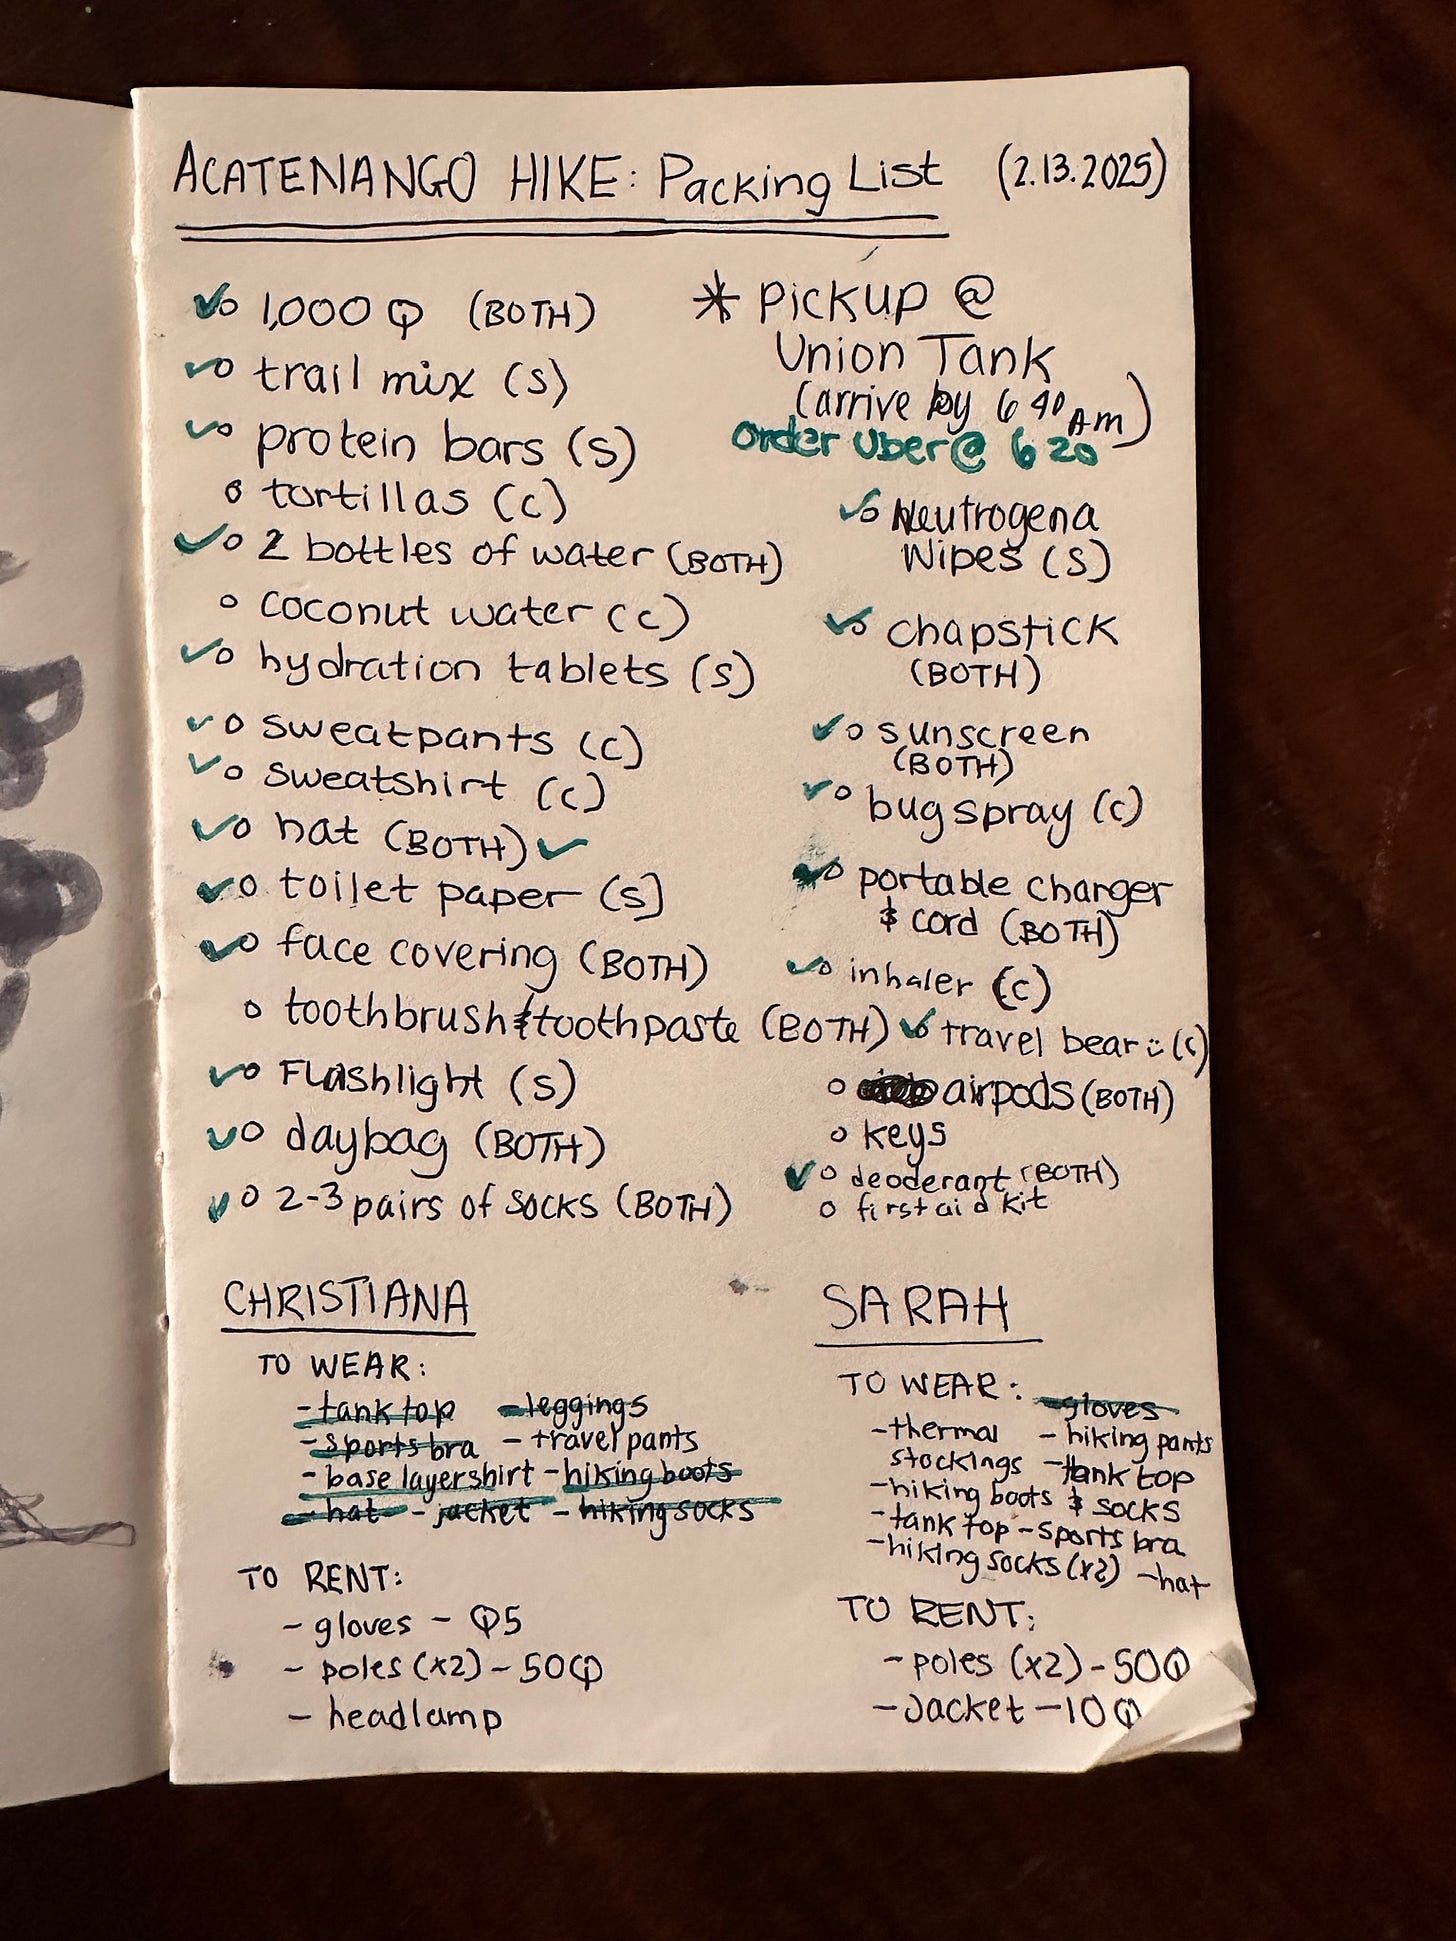 ACATENANGO HIKE: Packing List (2.13.2025)
✓o 1,000 Q (BOTH)
✓o trail mix (S)
✓o protein bars (S)
o tortillas (C)
✓o 2 bottles of water (BOTH)
o coconut water (C)
✓o hydration tablets (S)
✓o sweatpants (C)
✓o sweatshirt (C)
✓o hat (BOTH) ✓
✓o toilet paper (S)
✓o face covering (BOTH)
o toothbrush & toothpaste (BOTH)
✓o Flashlight (S)
✓o daybag (BOTH)
✓o 2-3 pairs of socks (BOTH)
* Pickup @
Union Tank
(arrive by 6 40 AM)
order uber @ 6 20
✓o Neutrogena
Wipes (S)
✓o chapstick
(BOTH)
✓o sunscreen
(BOTH)
✓o bug spray (C)
✓o portable charger
& cord (BOTH)
✓o inhaler (C)
✓o travel bear :) (C)
o airpods (BOTH)
o keys
✓o deoderant (BOTH)
o first aid kit
CHRISTIANA
TO WEAR:
- tank top - leggings
- sports bra - travel pants
- base layer shirt - hiking boots
- hat - jacket - hiking socks
TO RENT:
- gloves - Q5
- poles (x2) - 50Q
- headlamp
SARAH
TO WEAR: - gloves
- thermal - hiking pants
stockings - tank top
- hiking boots & socks
- tank top - sports bra
- hiking socks (x2) - hat
TO RENT:
- poles (x2) - 50Q
- Jacket - 10Q